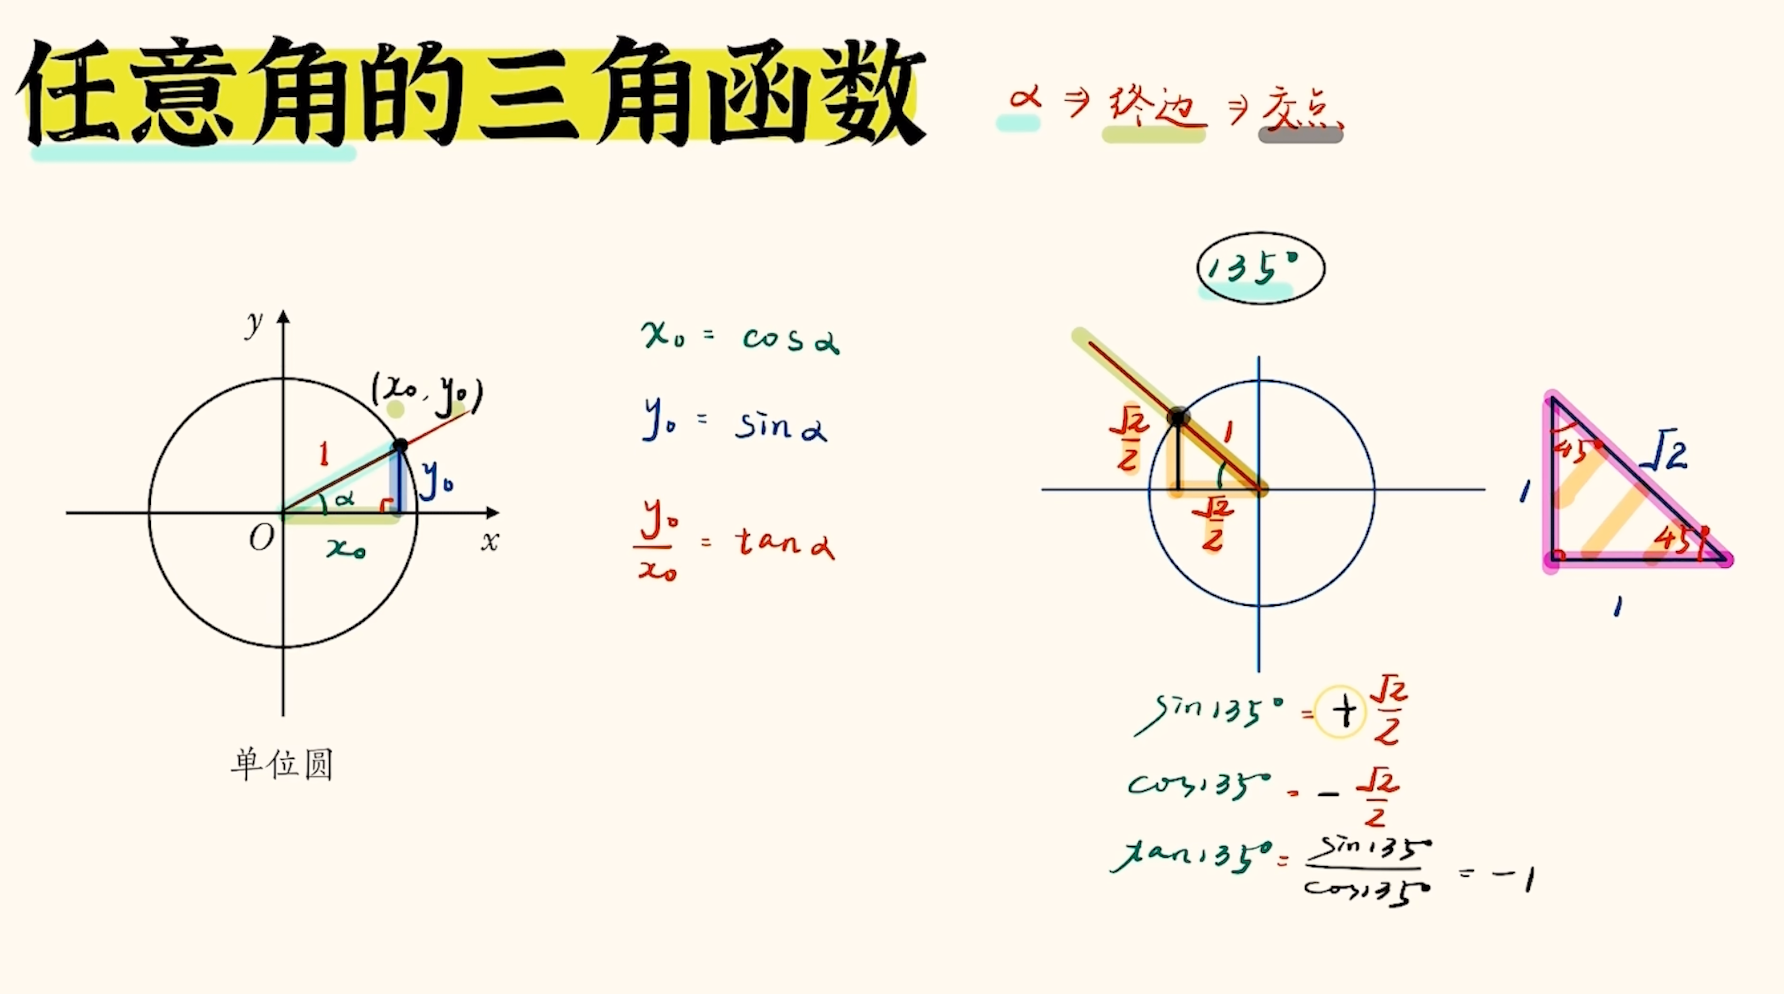 任意角的三角函数
α ⇒ 终边 ⇒ 交点
135°
y
(x₀, y₀)
1
α
y₀
O
x₀
x
单位圆
x₀ = cosα
y₀ = sinα
y₀/x₀ = tanα
√2/2
1
√2/2
45°
√2
1
45°
1
sin135° = + √2/2
cos135° = - √2/2
tan135° = sin135°/cos135° = -1